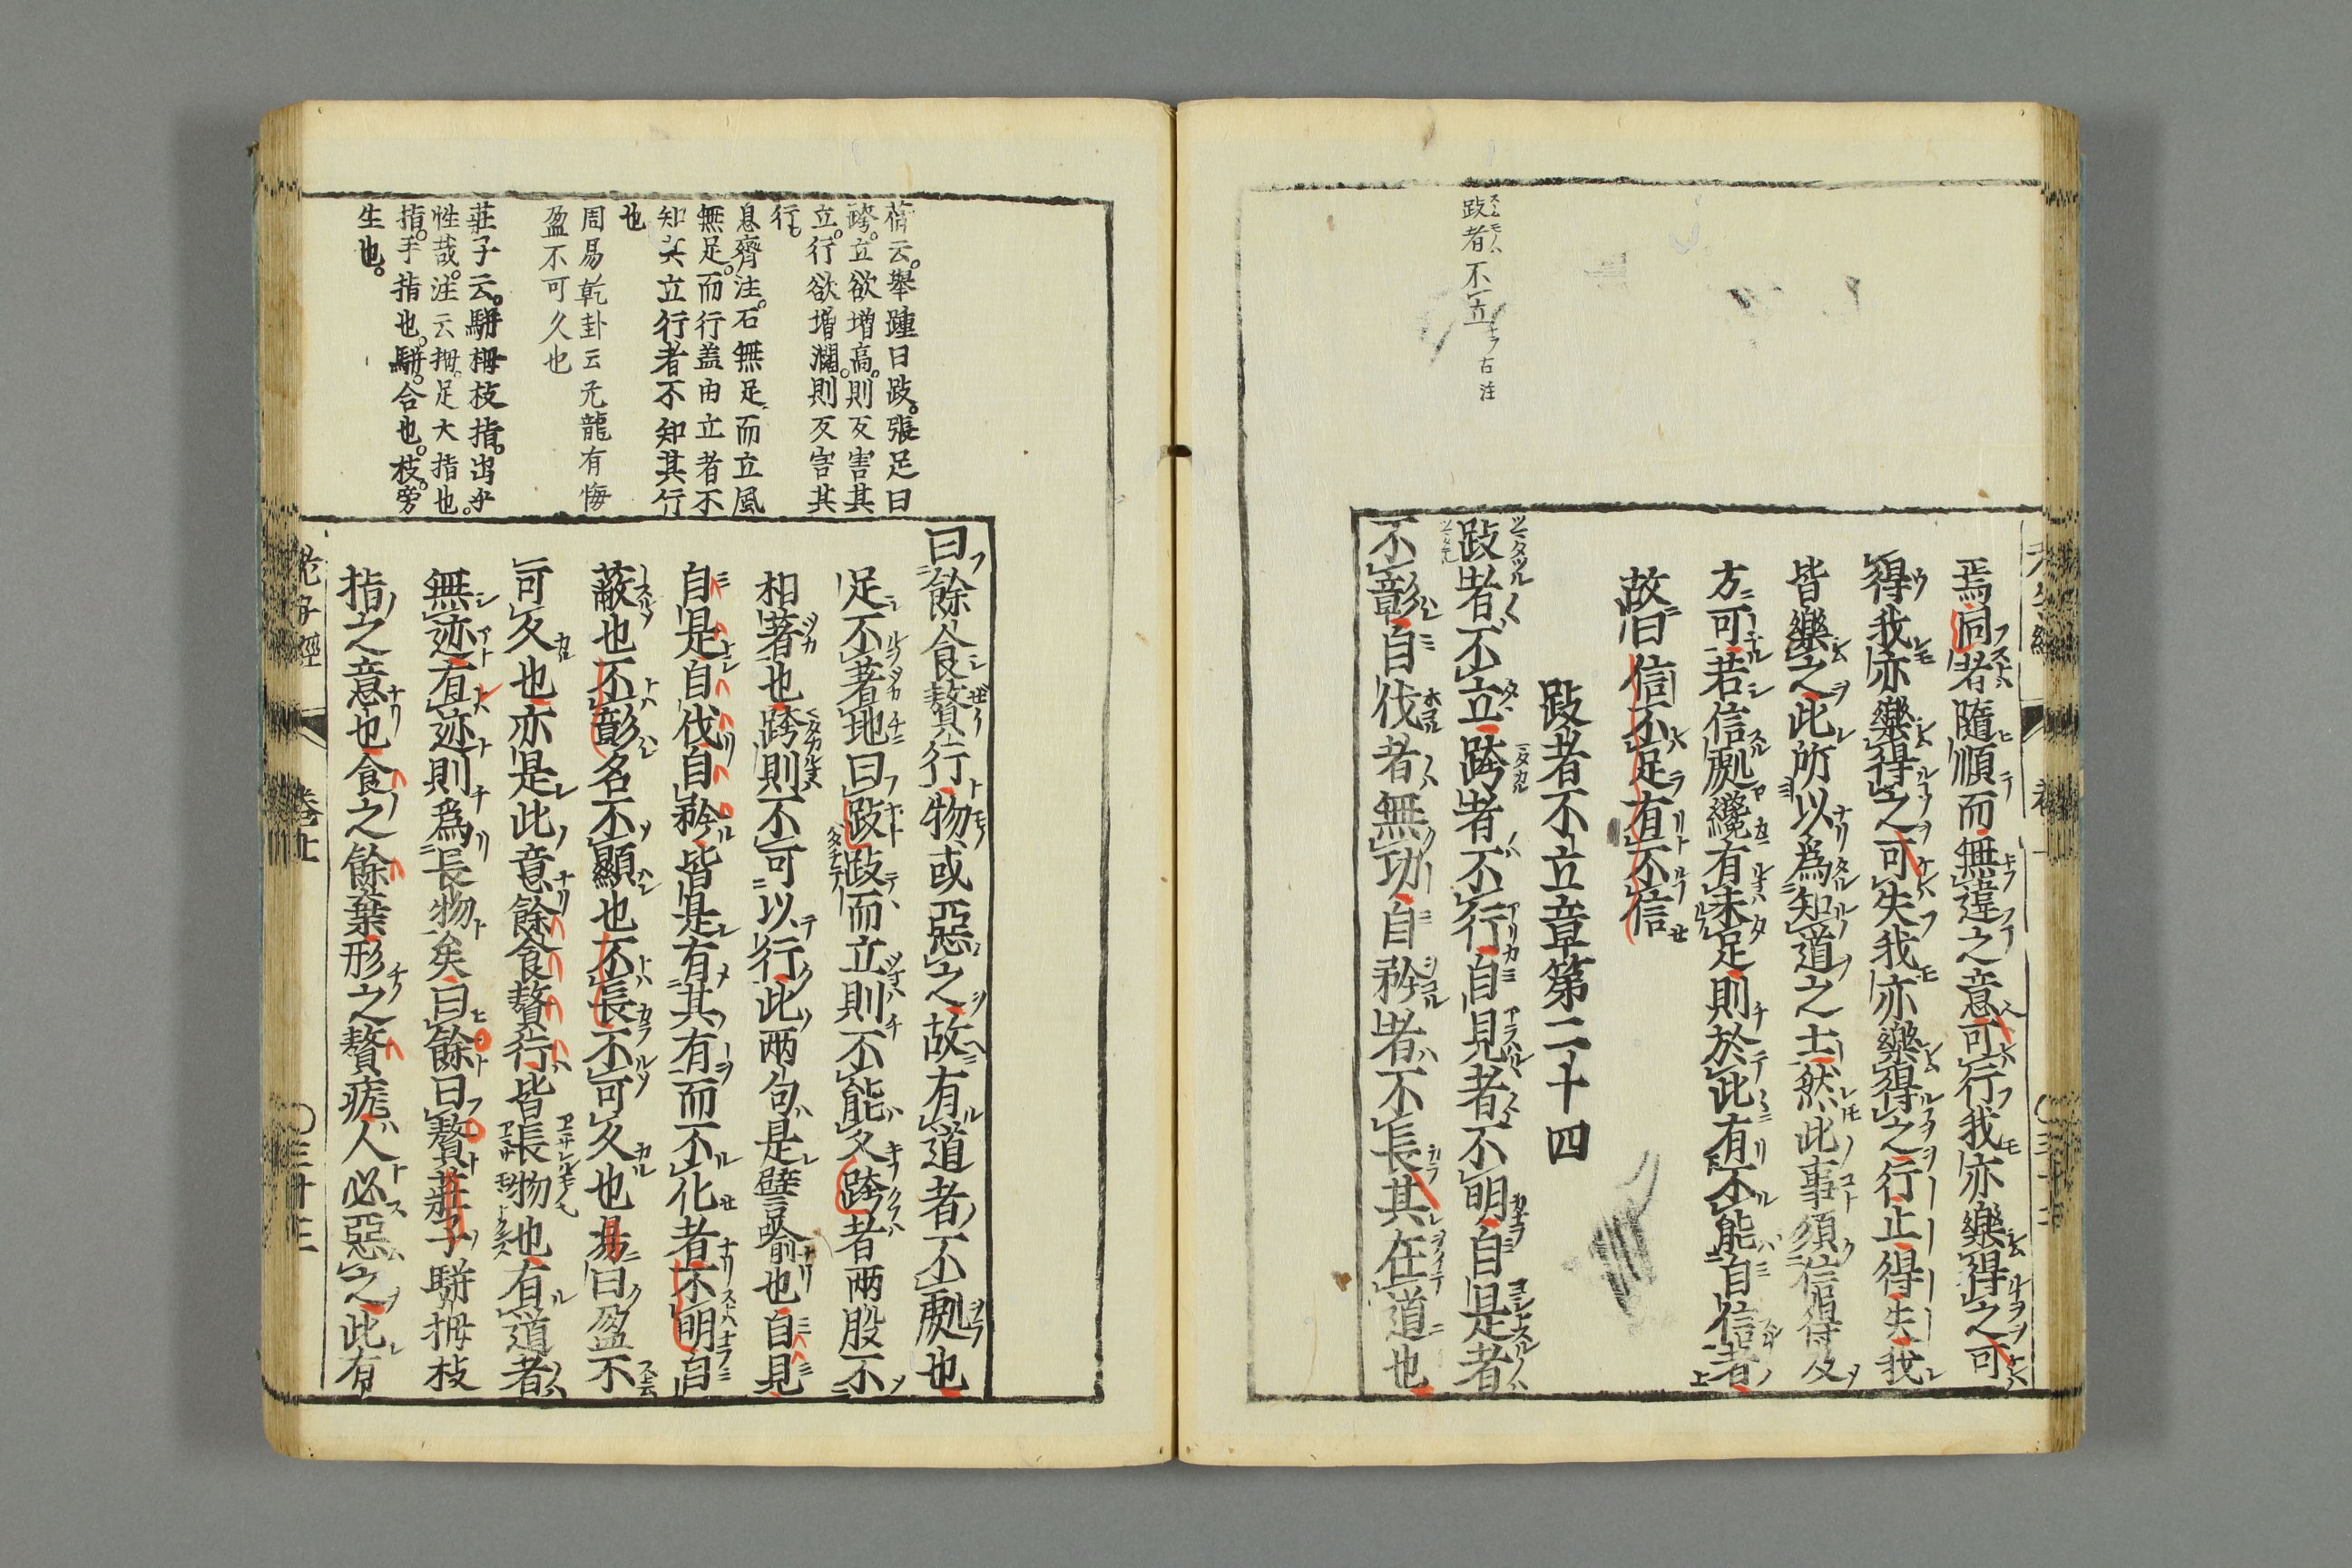 跂者不立古注
焉同者隨順而無違之意可行我亦樂得之可
得我亦樂得之可失我亦樂得之行止得失我
皆樂之此所以為知道之士然此事須信得及
方可若信處纔有未足則於此有不能自信者
故曰信不足有不信
跂者不立章第二十四
跂者不立跨者不行自見者不明自是者
不彰自伐者無功自矜者不長其在道也
云舉踵曰跂張足曰
跨立欲增高則反害其
立行欲增濶則反害其
行
息齋注石無足而立風
無足而行蓋由立者不
知其立行者不知其行
也
周易乾卦云亢龍有悔
盈不可久也
莊子云駢拇枝指出乎
性哉注云拇足大指也
指手指也駢合也枝旁
生也
曰餘食贅行物或惡之故有道者不處也
足不著地曰跂跂而立則不能久跨者兩股不
相著也跨則不可以行此兩句是譬喻也自見
自是自伐自矜皆是有其有而不化者不明自
蔽也不彰名不顯也不長不可久也易曰盈不
可久也亦是此意餘食贅行皆長物也有道者
無迹有迹則為長物矣曰餘曰贅莊子駢拇枝
指之意也食之餘棄形之贅疣人必惡之此有
老子經
卷上
三十三